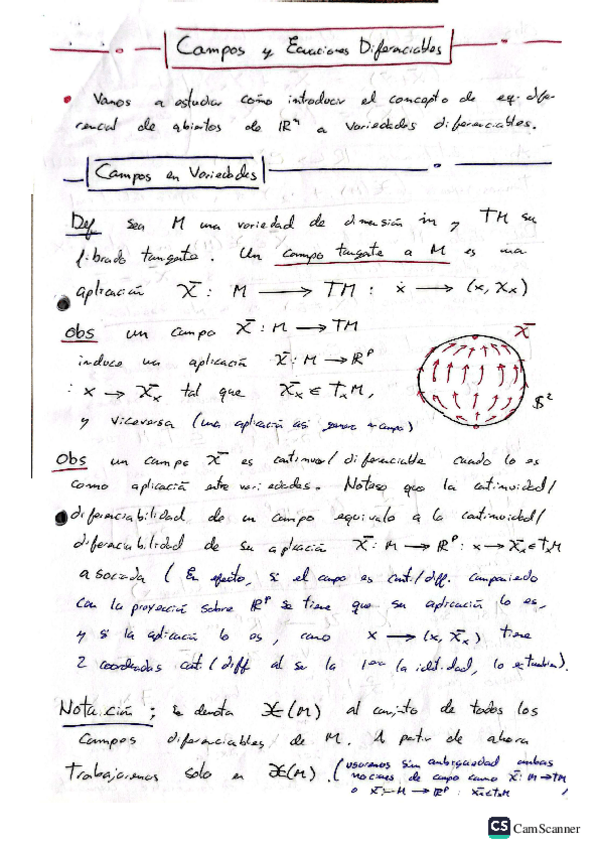 Campos y Ecuaciones Diferenciables
• Vamos a estudiar cómo introducir el concepto de eq. dife-
rencial de abiertos de ℝⁿ a variedades diferenciables.
Campos en Variedades
Def Sea M una variedad de dimensión m y TM su
fibrado tangente. Un campo tangente a M es una
aplicación X̄ : M ⟶ TM : x ⟶ (x, X̄x)
Obs un campo X̄ : M ⟶ TM
induce una aplicación X̄ : M ⟶ ℝᵖ
: x → X̄x tal que X̄x ∈ TxM,
y viceversa (una aplicación así genera un campo)
X̄
S²
Obs un campo X̄ es continuo / diferenciable cuando lo es
como aplicación entre variedades. Nótese que la continuidad/
diferenciabilidad de un campo equivale a la continuidad/
diferenciabilidad de su aplicación X̄ : M → ℝᵖ : x → X̄x ∈ TxM
asociada (En efecto, si el campo es cont./diff. componiendo
con la proyección sobre ℝᵖ se tiene que su aplicación lo es,
y si la aplicación lo es, como x ⟶ (x, X̄x) tiene
2 coordenadas cont./diff al ser la 1ª la identidad, lo es también).
Notación ; Se denota 𝔛(M) al conjunto de todos los
campos diferenciables de M. A partir de ahora
trabajaremos solo en 𝔛(M). (usaremos sin ambigüedad ambas
nociones de campo como X̄ : M → TM
o X̄ : M → ℝᵖ : X̄x ∈ TxM
CS CamScanner